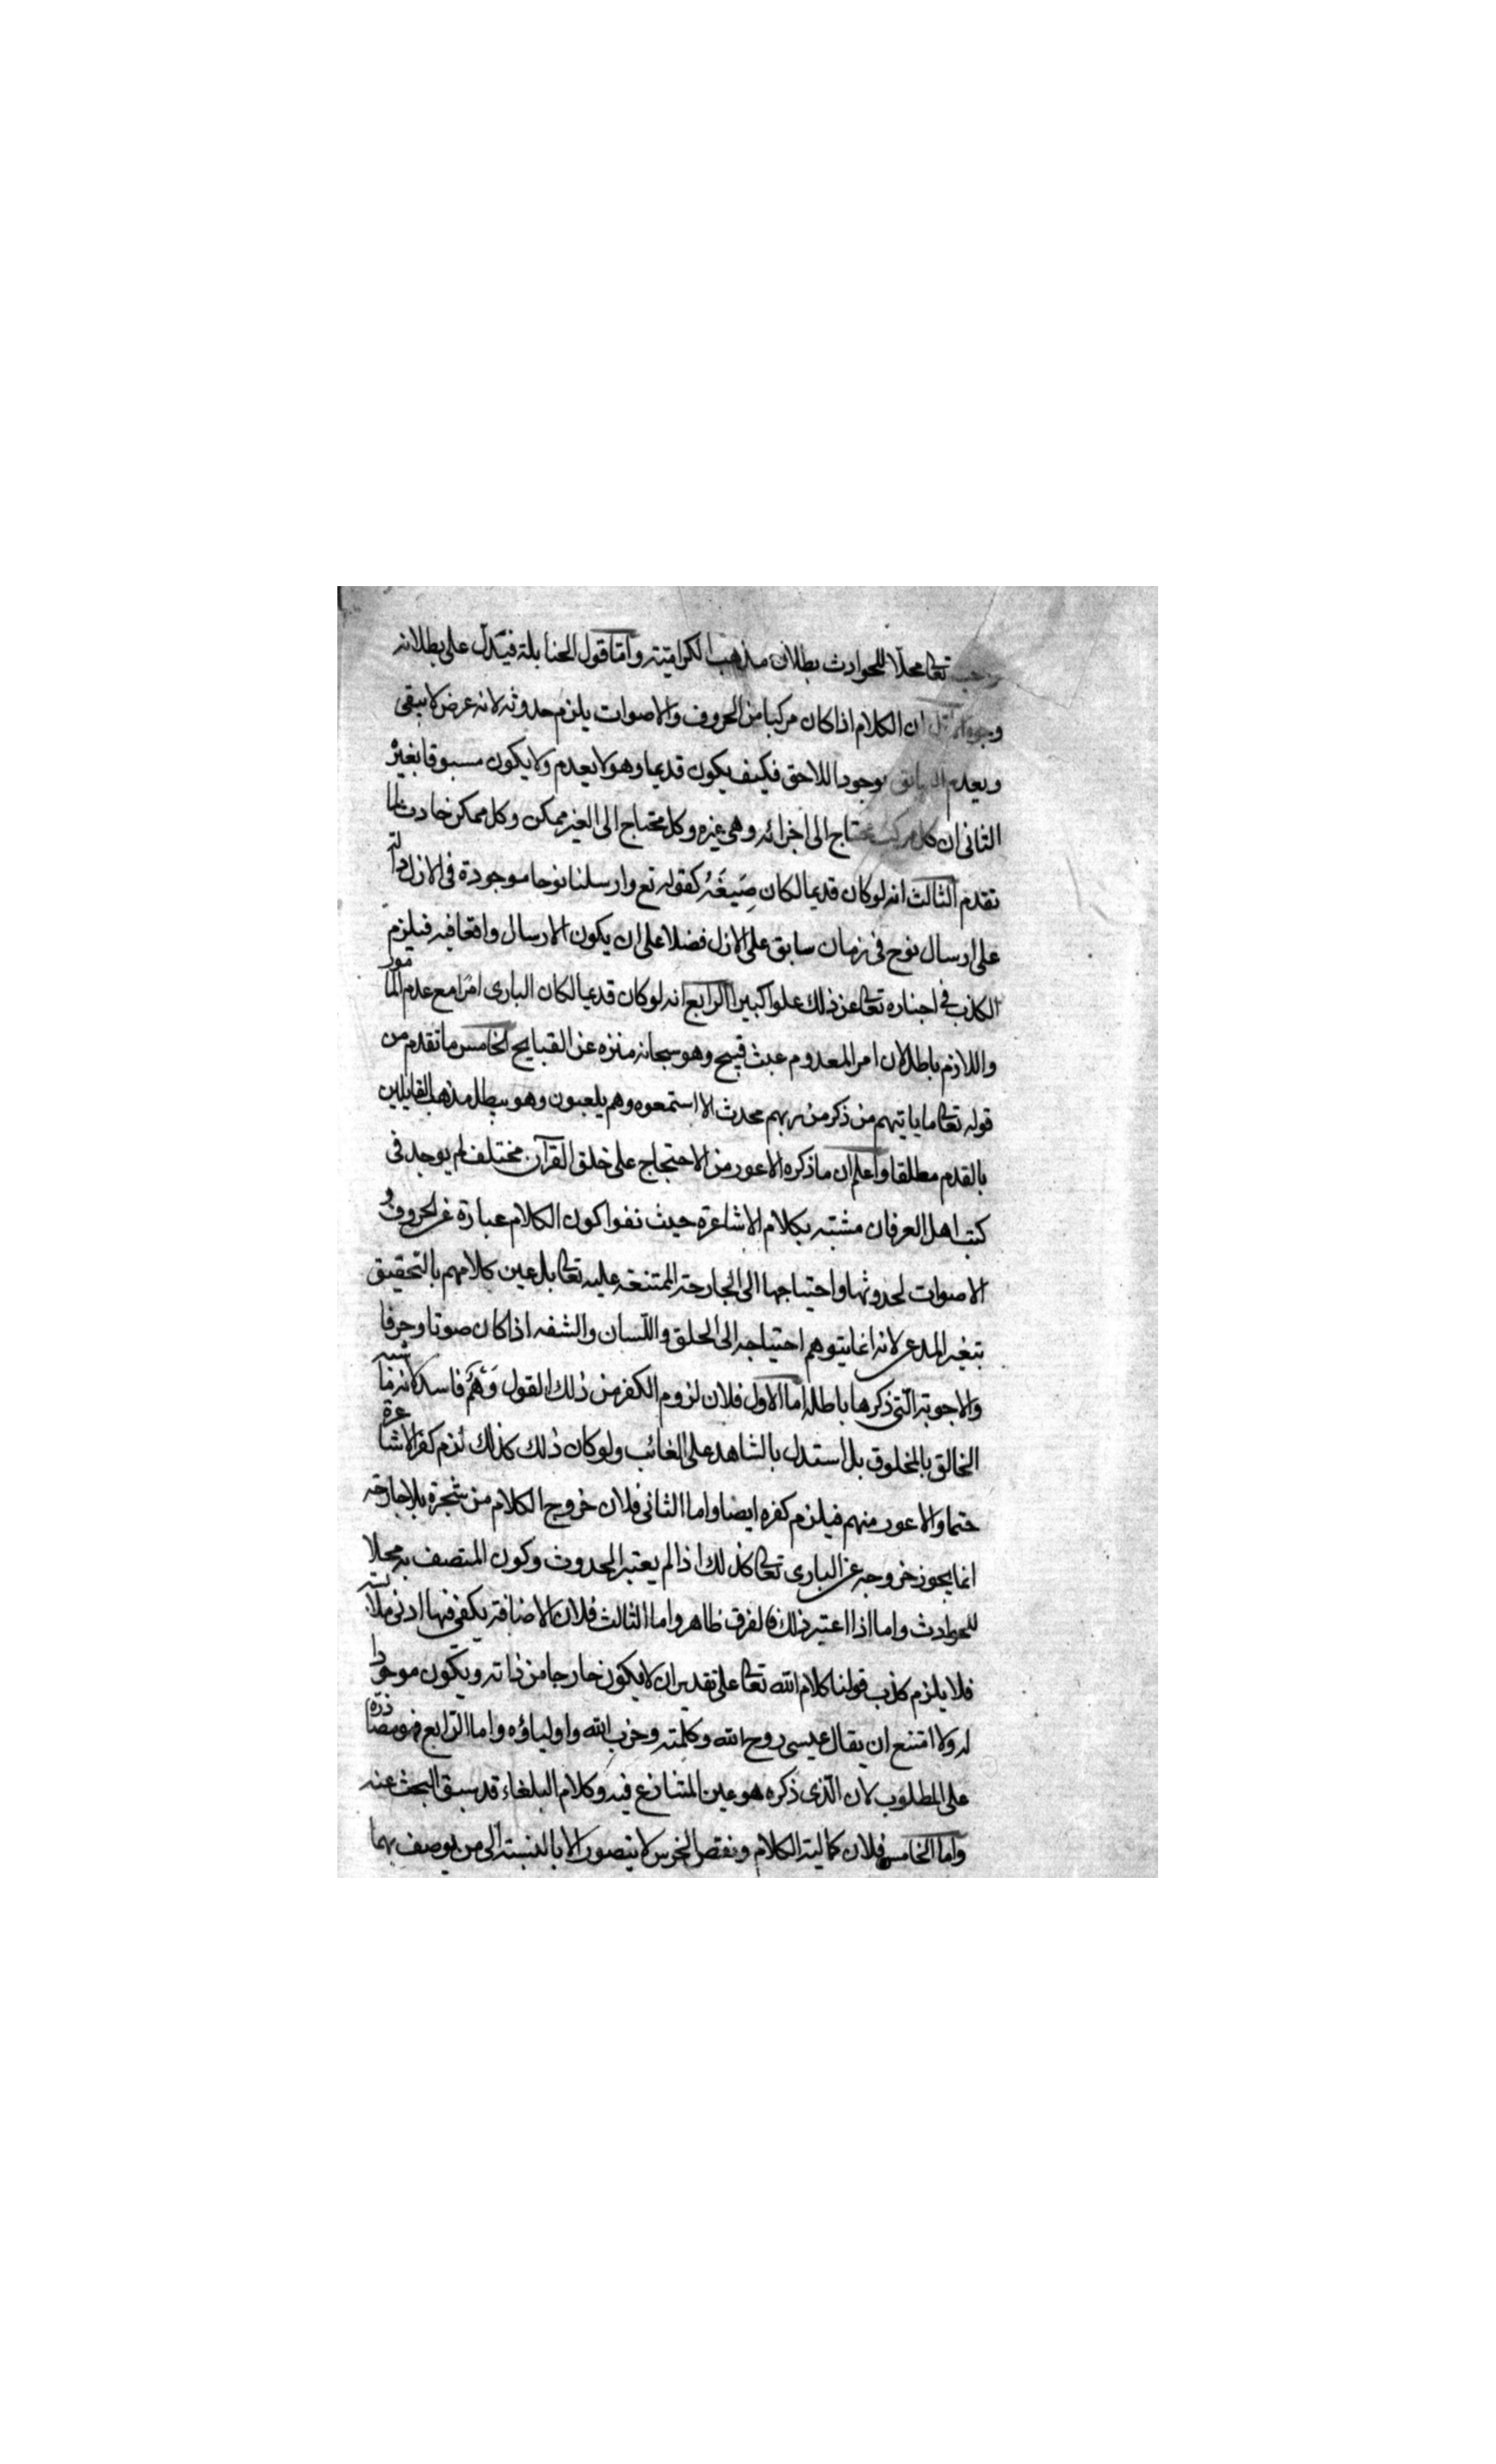 تعالى محلا للحوادث بطلان مذهب الكرامية واما قول الحنابلة فيدل على بطلانه
وجوه ان الكلام اذا كان مركبا من الحروف والاصوات يلزم حدوثه لانه عرض لا يبقى
ويعدم السابق بوجود اللاحق فكيف يكون قديما وهو لا يعدم ولا يكون مسبوقا بغيره
الثانى ان كل مركب محتاج الى اجزائه وهى غيره وكل محتاج الى الغير ممكن وكل ممكن حادث لما
تقدم الثالث انه لو كان قديما لكان صيغة كقوله تع وارسلنا نوحا موجودة فى الازل دالة
على ارسال نوح فى زمان سابق على الازل فضلا على ان يكون الارسال واقعا فيه فيلزم
الكذب فى اخباره تعالى عن ذلك علوا كبيرا الرابع انه لو كان قديما لكان البارى امرا مع عدم المامور
واللازم باطل لان امر المعدوم عبث قبيح وهو سبحانه منزه عن القبايح الخامس ما تقدم من
قوله تعالى ما ياتيهم من ذكر من ربهم محدث الا استمعوه وهم يلعبون وهو يبطل مذهب القايلين
بالقدم مطلقا واعلم ان ما ذكره الاعور من الاحتجاج على خلق القرآن مختلف لم يوجد فى
كتب اهل العرفان مشتبه بكلام الاشاعرة حيث نفوا كون الكلام عبارة عن الحروف و
الاصوات لحدوثها واحتياجها الى الجارحة الممتنعة عليه تعالى بل عين كلامهم بالتحقيق
بتغير المدعى لانه انما يتوهم احتياجه الى الحلق واللسان والشفه اذا كان صوتا وحرفا
والاجوبة التى ذكرها باطلة اما الاول فلان لزوم الكفر من ذلك القول وهم فاسد لانه ما شبه
الخالق بالمخلوق بل استدل بالشاهد على الغائب ولو كان ذلك كذلك لزم كفر الاشاعرة
حتما والاعور منهم فيلزم كفره ايضا واما الثانى فلان خروج الكلام من شجرة بلا جارحة
انما يجوز خروجه عن البارى تعالى كذلك اذا لم يعتبر الحدوث وكون المتصف به محلا
للحوادث واما اذا اعتبر ذلك فالفرق ظاهر واما الثالث فلان الاضافة يكفى فيها ادنى ملابسة
فلا يلزم كذب قولنا كلام الله تعالى على تقدير ان لا يكون خارجا من ذاته ويكون موجودا
له ولا امتنع ان يقال عيسى روح الله وكلمته وحزب الله واولياؤه واما الرابع فهو مصادرة
على المطلوب لان الذى ذكره هو عين المتنازع فيه وكلام البلغاء قد سبق البحث عنه
واما الخامس فلان كمالية الكلام ونقص الخرس لا يتصور الا بالنسبة الى من يوصف بهما